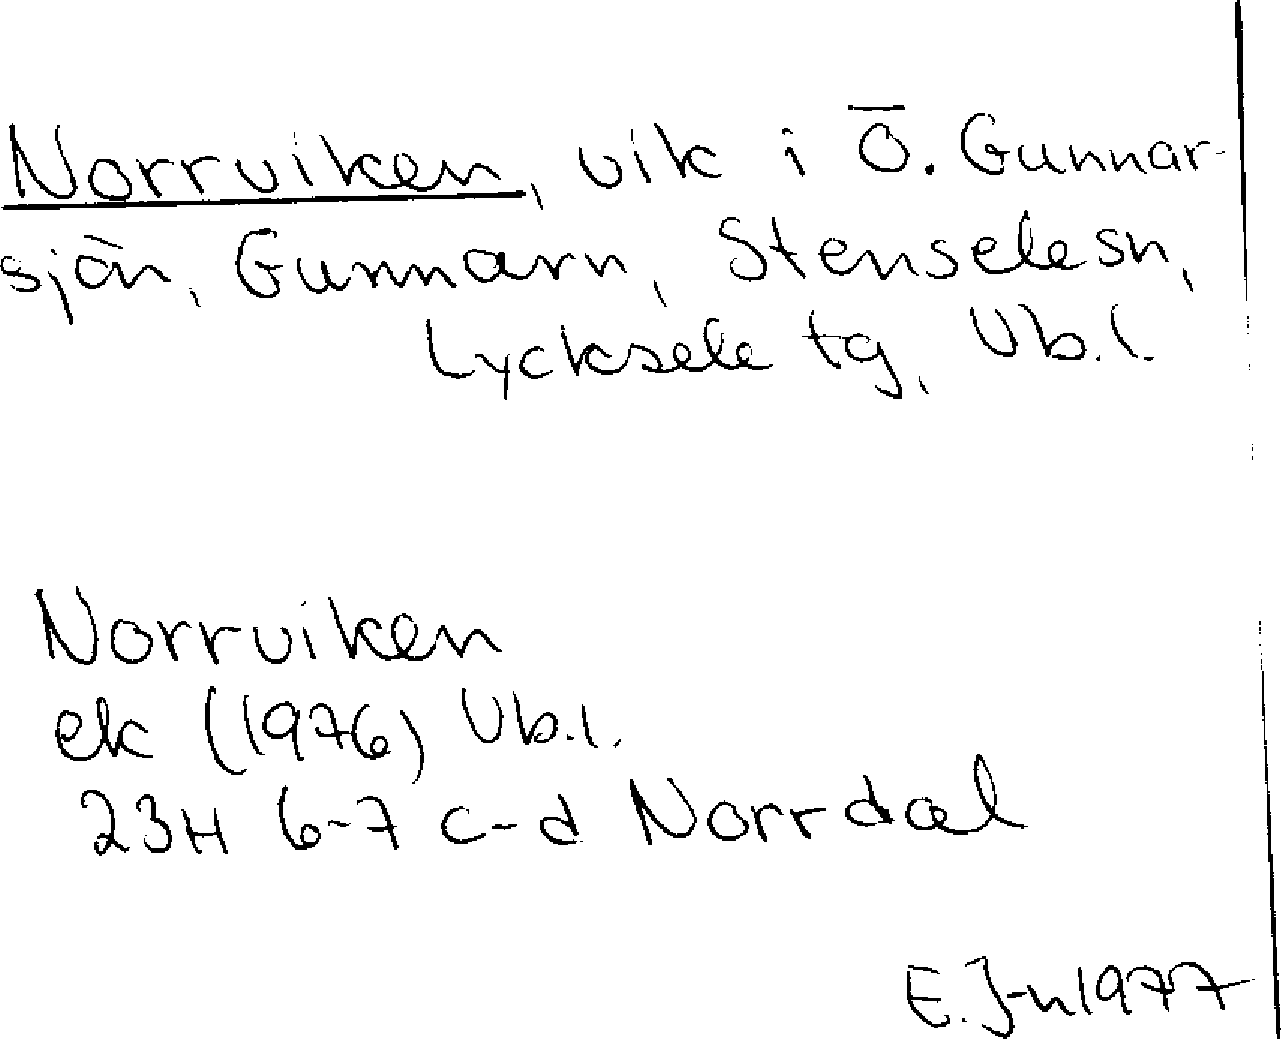 Norrviken, vik i Ö. Gunnar-
sjön, Gunnarn, Stenselesn,
Lycksele tg, Vb.l.
Norrviken
ek (1976) Vb.l.
23H 6-7 c-d Norrdal
E. J-n 1977